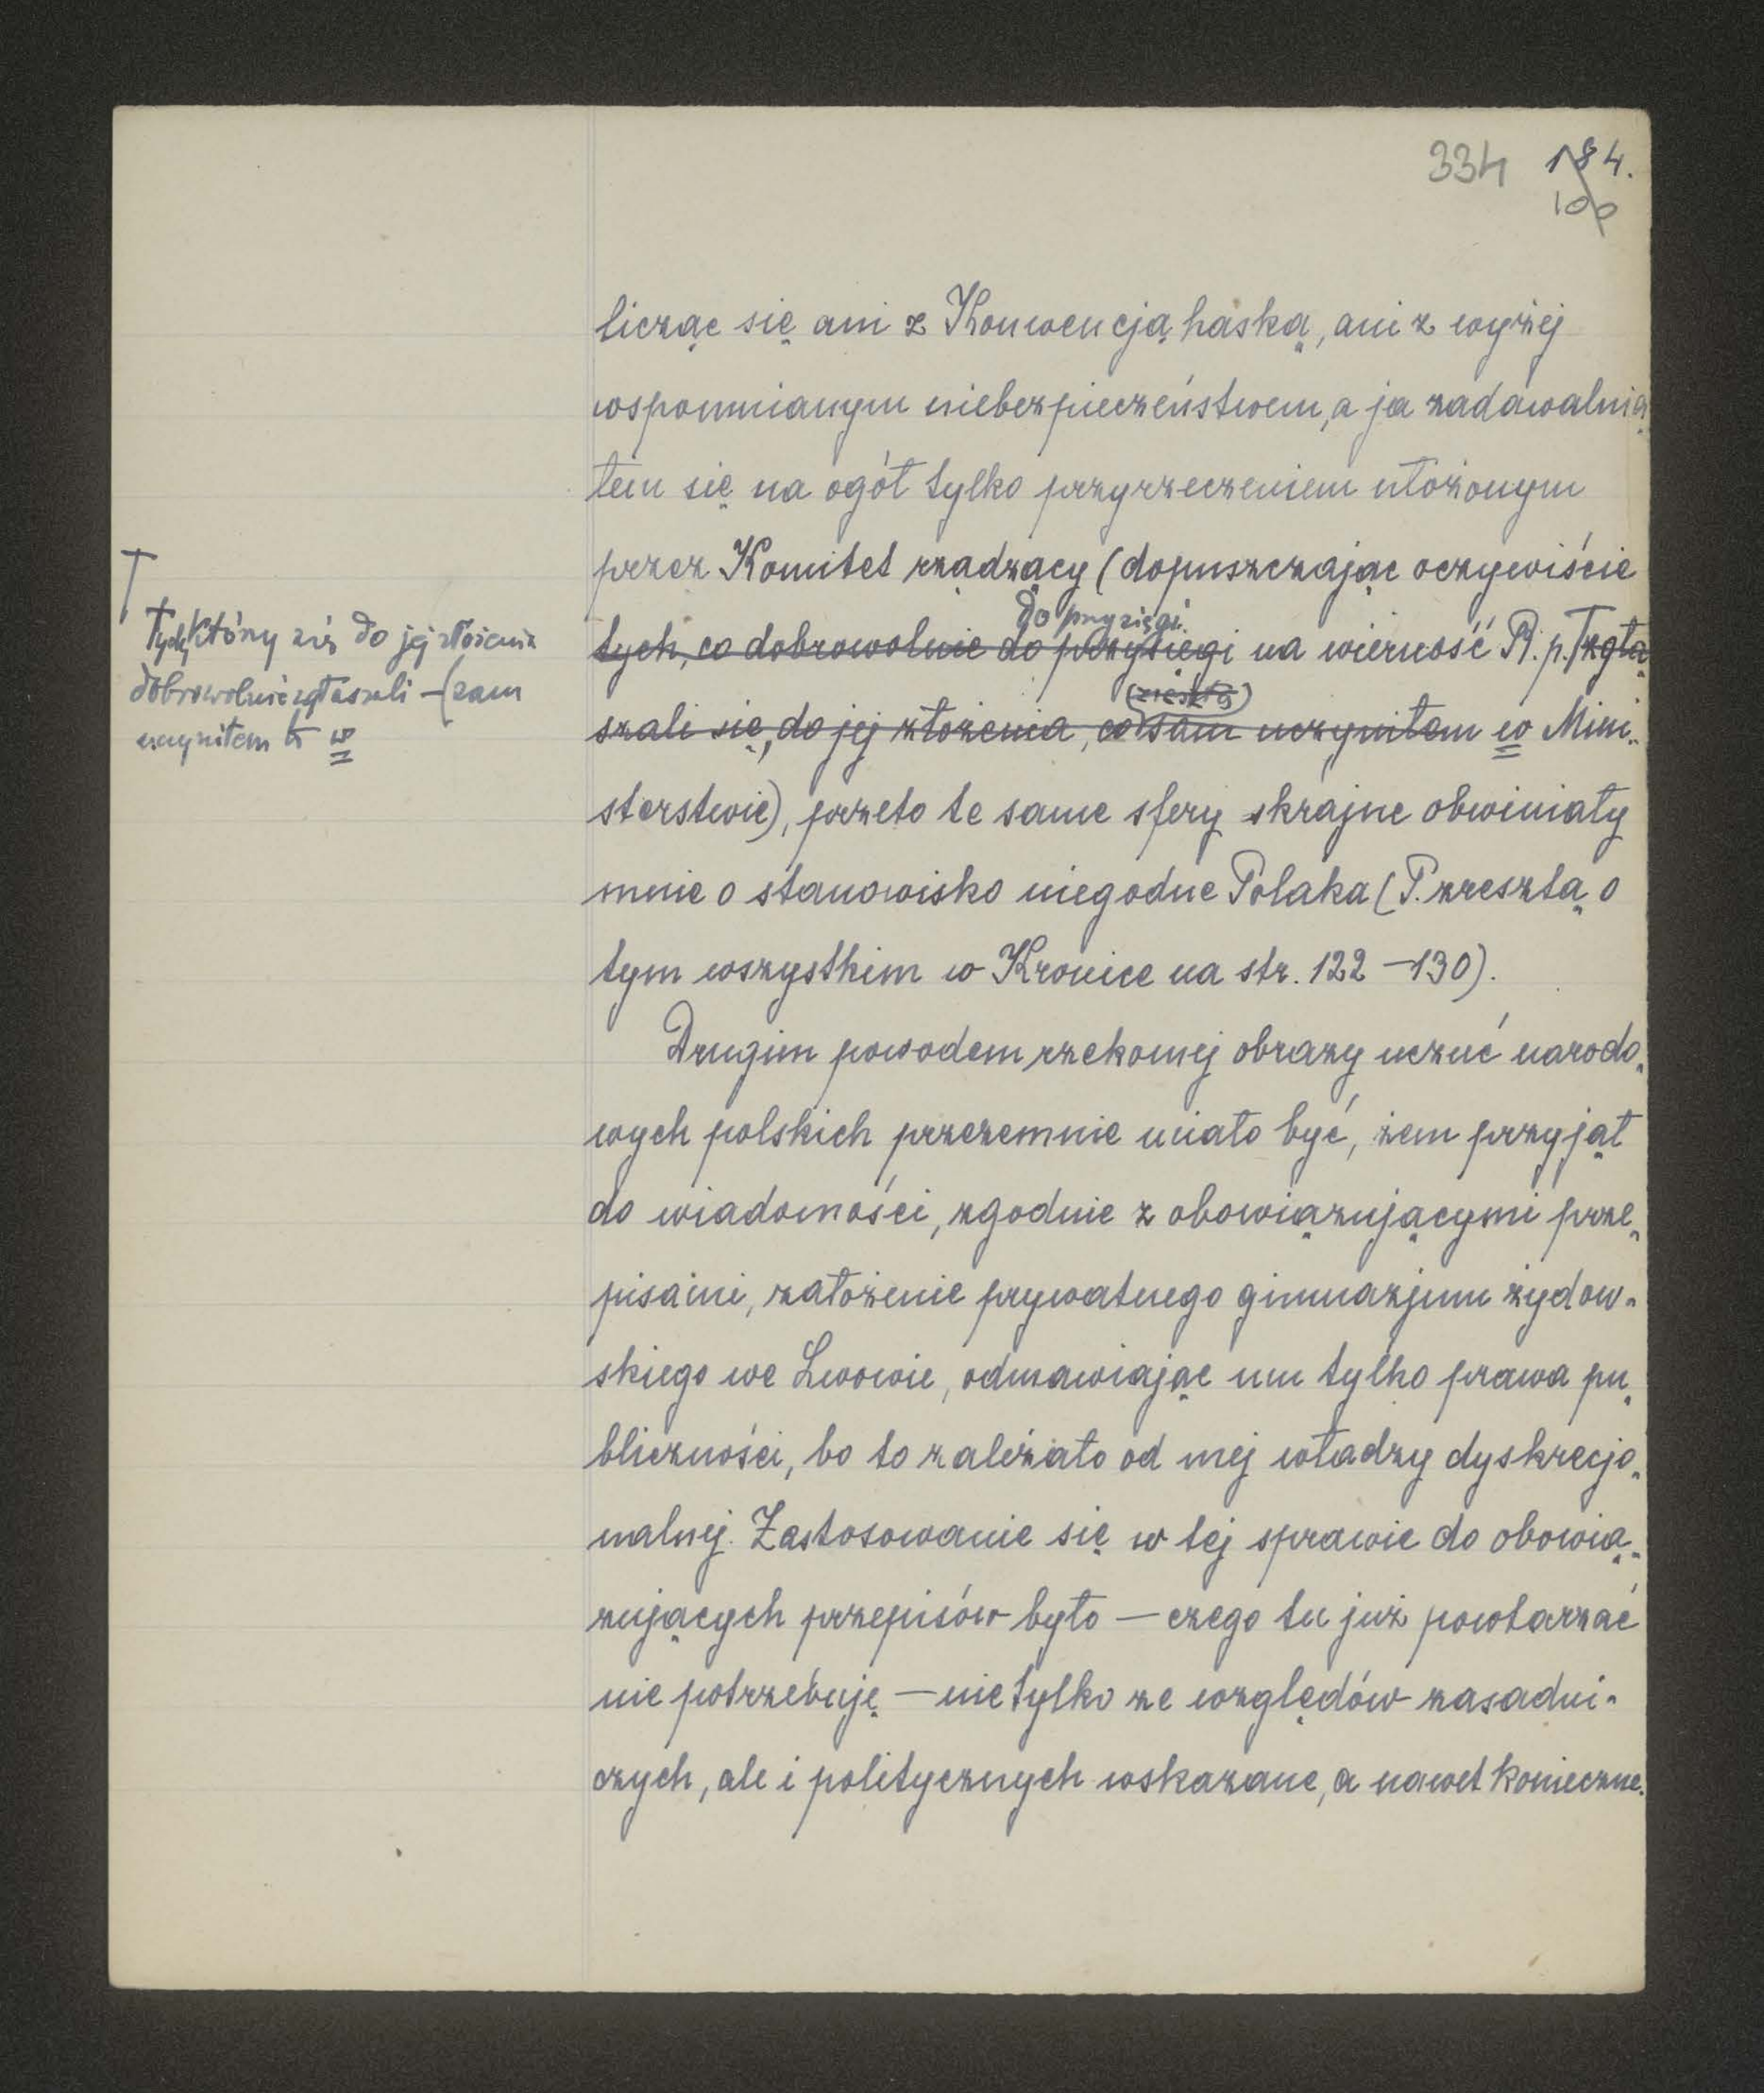 334 184.
100
licząc się ani z Konwencją haską, ani z wyżej
wspomnianym niebezpieczeństwem, a ja zadawalnia
łem się na ogół tylko przyrzeczeniem ułożonym
przez Komitet rządzący (dopuszczając oczywiście
do przysięgi
tych, co dobrowolnie do przysięgi na wierność R.p. zgła
szali się, do jej złożenia, co sam uczyniłem w Mini-
sterstwie), przeto te same sfery skrajne obwiniały
mnie o stanowisko niegodne Polaka (P. zresztą o
tym wszystkim w Kronice na str. 122 – 130).
Drugim powodem rzekomej obrazy uczuć narodo-
wych polskich przezemnie miało być, żem przyjął
do wiadomości, zgodnie z obowiązującymi prze-
pisami, założenie prywatnego gimnazjum żydow-
skiego we Lwowie, odmawiając mu tylko prawa pu-
bliczności, bo to zależało od mej władzy dyskrecjo-
nalnej. Zastosowanie się w tej sprawie do obowią-
zujących przepisów było – czego tu już powtarzać
nie potrzebuję – nie tylko ze względów zasadni-
czych, ale i politycznych wskazane, a nawet konieczne.
Tych, którzy się do jej złożenia
dobrowolnie zgłaszali – (sam
uczyniłem to w